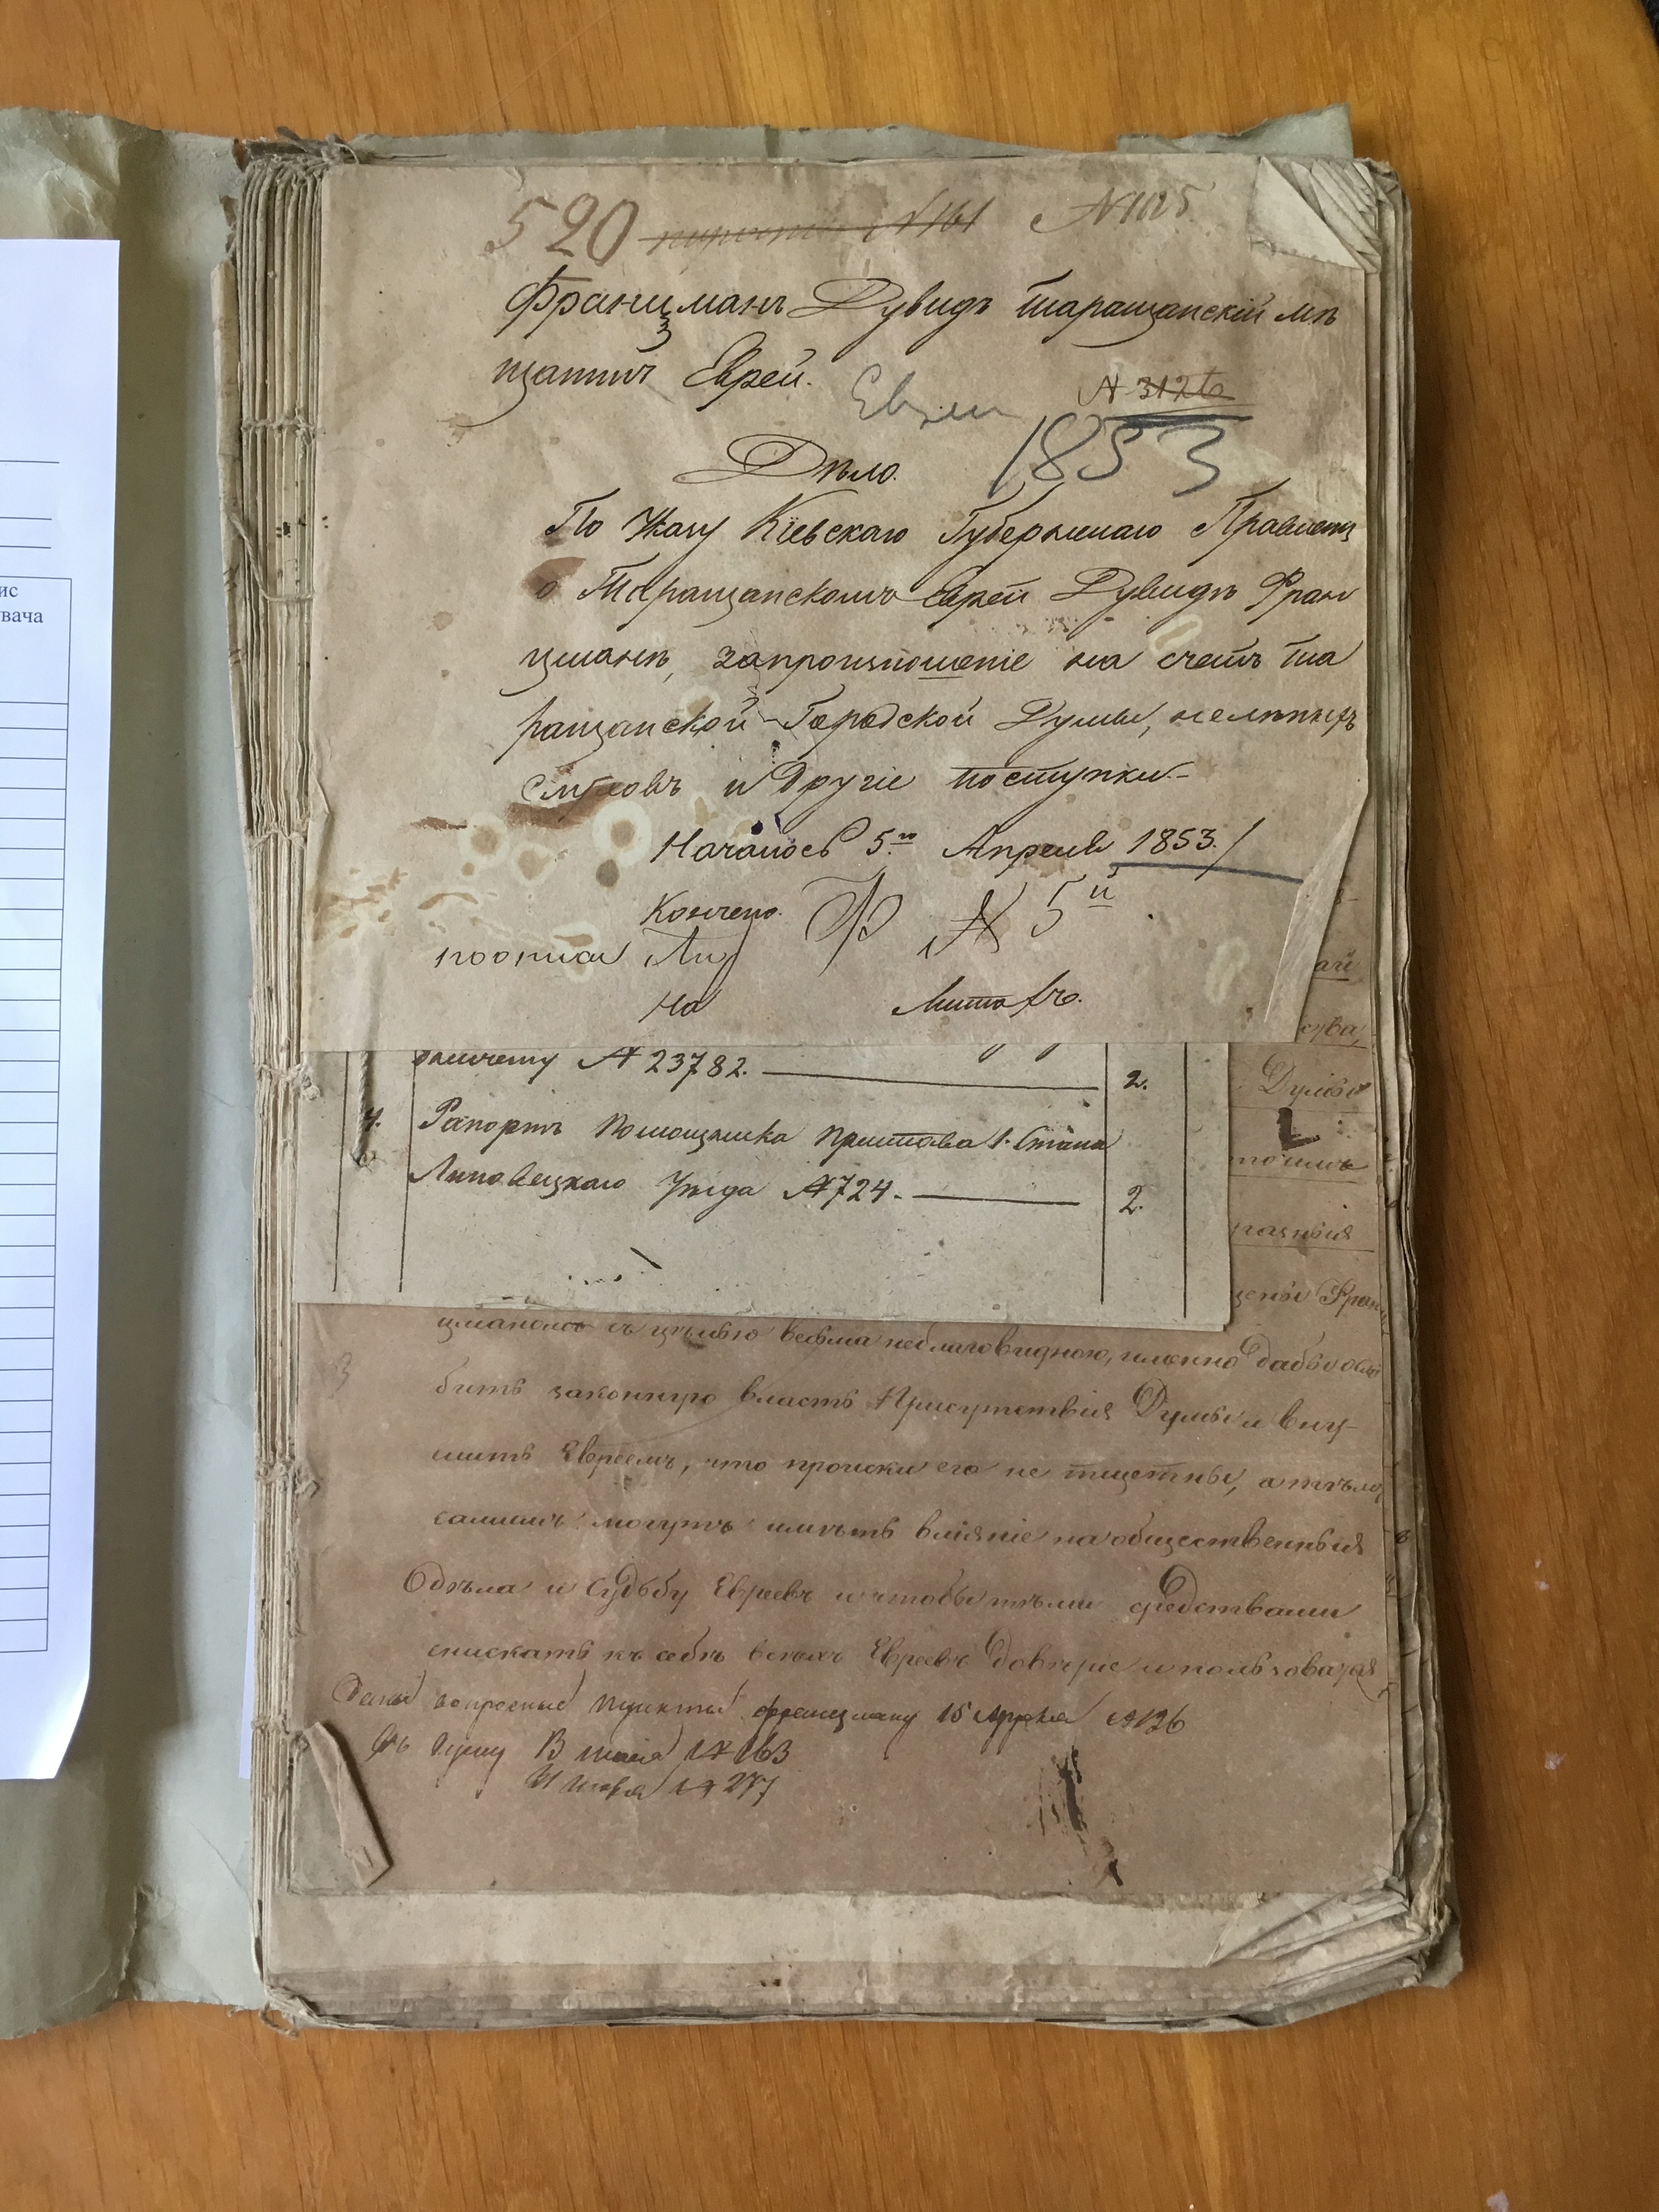 520 № 161 № 1125
Францманъ Дувидъ таращанскій мѣ
щанинъ Еврей. Евреи
№ 3126
1853
Дѣло.
По Указу Кіевскаго Губернскаго Правленія
о Таращанскомъ Еврей Дувидѣ Фран
цманѣ, за произношеніе на счетъ та
ращанской Городской Думы, нелѣпыхъ
слуховъ и другіе поступки.
Началось 5го Апреля 1853.
Кончено.
№ 5й
На Листахъ.
№ 23782. 2.
4. Рапортъ Помощника Пристава 1. Стана
Липовецкаго Уѣзда № 724. 2.
ай
Думы
разныя
Фран
цманомъ съ цѣлью весьма неблаговидною, именно дабы осла
бить законную власть Присутствія Думы и вну-
шить Евреямъ, что происки его не тщетны, а тѣмъ
самымъ могутъ имѣть вліяніе на общественныя
дѣла и судьбу Евреевъ и чтобы тѣми средствами
снискать къ себѣ всехъ Евреевъ довѣріе и пользоватся
Даны вопросные пункты Францману 15 Апреля № 126
Въ Думу 13 мая № 163
№ 277
ис
вача